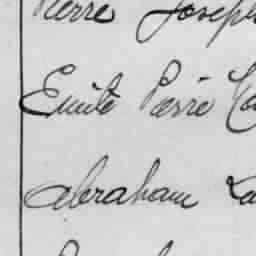 Pierre Joseph
Emile Pierre
Abraham La